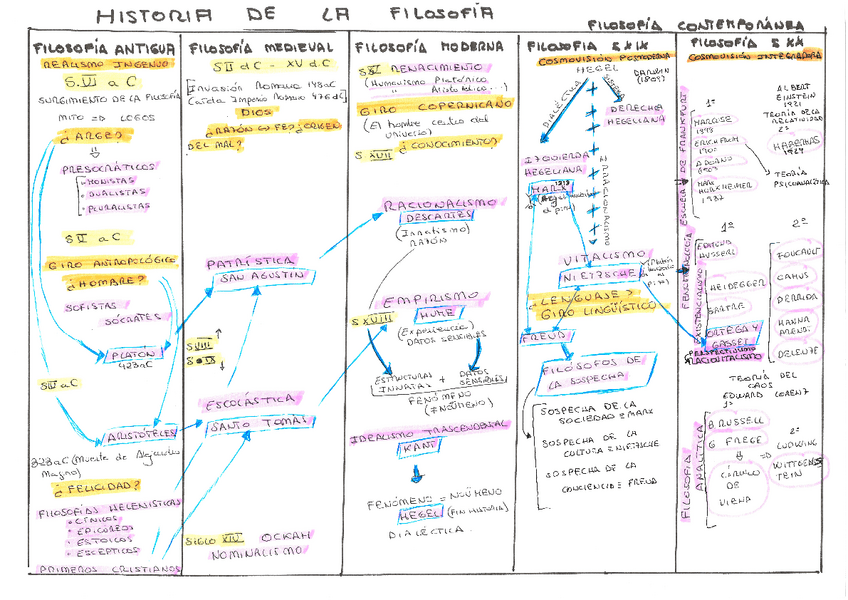 HISTORIA DE LA FILOSOFÍA
FILOSOFÍA CONTEMPORÁNEA
FILOSOFÍA ANTIGUA
REALISMO INGENUO
S.VI a C
SURGIMIENTO DE LA FILOSOFÍA
MITO => LOGOS
¿ARGE?
PRESOCRÁTICOS
• MONISTAS
• DUALISTAS
• PLURALISTAS
GIRO ANTROPOLÓGICO
¿HOMBRE?
SOFISTAS
SÓCRATES
PLATÓN
ARISTÓTELES
(Muerte de Alejandro
Magno)
¿FELICIDAD?
FILOSOFÍAS HELENÍSTICAS
• CÍNICOS
• EPICÚREOS
• ESTOICOS
• ESCÉPTICOS
PRIMEROS CRISTIANOS
FILOSOFÍA MEDIEVAL
S II d.C - XV d.C
Invasión Romana
Caída Imperio Romano 476 d.C
DIOS
¿RAZÓN FE? ¿ORIGEN
DEL MAL?
PATRÍSTICA
SAN AGUSTIN
ESCOLÁSTICA
SANTO TOMAS
SIGLO XIV OCKAH
NOMINALISMO
FILOSOFÍA MODERNA
RENACIMIENTO
(Humanismo Platónico
Aristotélico...)
GIRO COPERNICANO
(El hombre centro del
universo)
S XVII ¿CONOCIMIENTO?
RACIONALISMO
DESCARTES
(Innatismo)
RAZÓN
EMPIRISMO
S XVIII HUME
(Experiencia)
DATOS SENSIBLES
ESTRUCTURAS INNATAS + DATOS SENSIBLES
FENÓMENO
(NOÚMENO)
IDEALISMO TRASCENDENTAL
KANT
FENÓMENO = NOÚMENO
HEGEL (FIN HISTORIA)
DIALÉCTICA.
FILOSOFÍA S XIX
COSMOVISIÓN POSMODERNA
HEGEL
DARWIN
DIALÉCTICA
SISTEMA
DERECHA
HEGELIANA
IZQUIERDA
HEGELIANA
MARX
VITALISMO
NIETZSCHE
¿LENGUAJE?
GIRO LINGÜÍSTICO
FREUD
FILÓSOFOS DE
LA SOSPECHA
SOSPECHA DE LA
SOCIEDAD = MARX
SOSPECHA DE LA
CULTURA = NIETZSCHE
SOSPECHA DE LA
CONCIENCIA = FREUD
FILOSOFÍA S XX
COSMOVISIÓN INTEGRADORA
ESCUELA DE FRANKFURT
1º
MARCUSE
ERICH FROM
ADORNO
MAX
HORKHEIMER
ALBERT
EINSTEIN
1921
TEORÍA DE LA
RELATIVIDAD
2º
HABERMAS
1929
TEORÍA
PSICOANALÍTICA
FENOMENOLOGÍA
EXISTENCIALISMO
1º
EDMUND
HUSSERL
HEIDEGGER
SARTRE
ORTEGA Y
GASSET
PERSPECTIVISMO
RACIOVITALISMO
2º
FOUCAULT
CAMUS
DERRIDA
HANNA
ARENDT
TEORÍA DEL
CAOS
EDWARD LORENZ
FILOSOFÍA
ANALÍTICA
1º
B RUSSELL
G FREGE
CÍRCULO
DE
VIENA
2º
LUDWING
WITTGENSTEIN